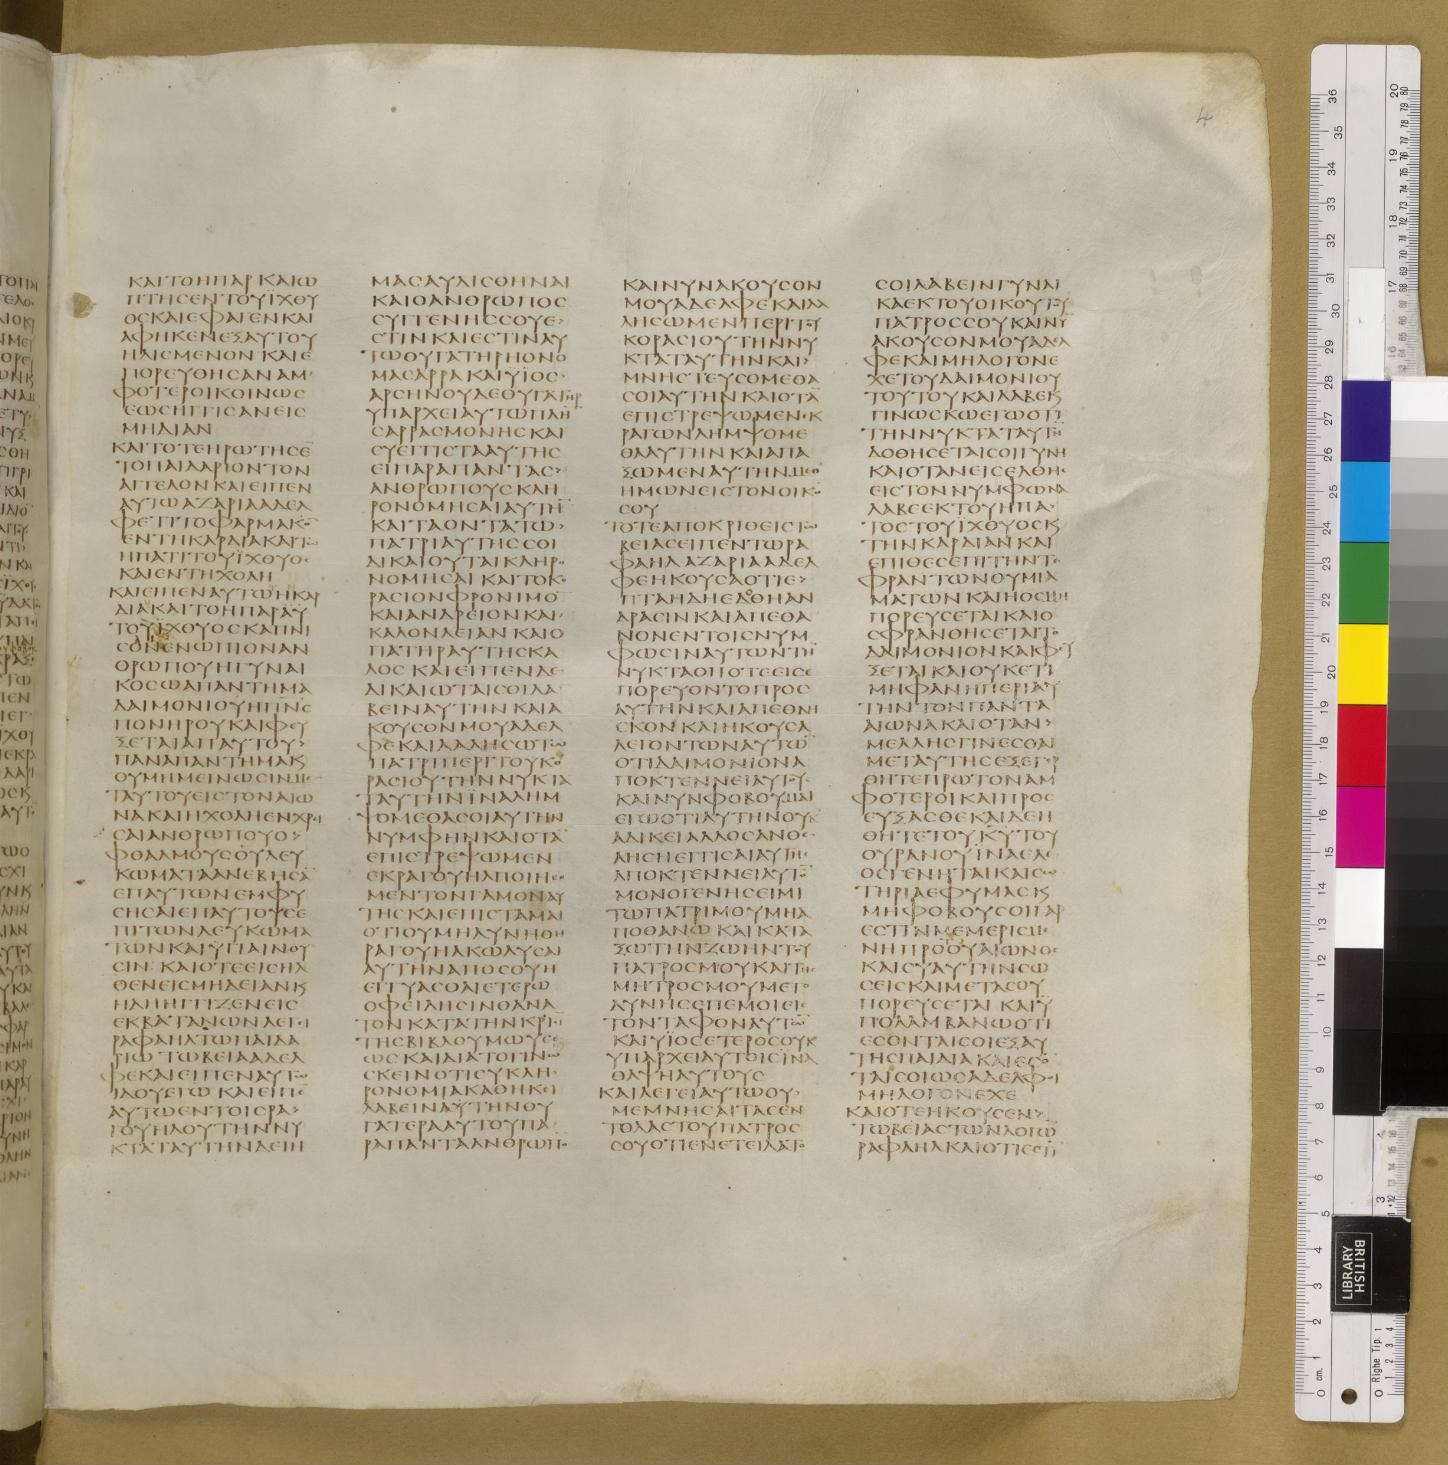 ΚΑΙΤΟΗΠΑΡΚΑΙΩ
ΠΤΗϹΕΝΤΟΥΪΧΘΥ
ΟϹΚΑΙΕΦΑΓΕΝΚΑΙ
ΑΦΗΚΕΝΕΞΑΥΤΟΥ
ΗΛΙϹΜΕΝΟΝΚΑΙΕ
ΠΟΡΕΥΘΗϹΑΝΑΜ
ΦΟΤΕΡΟΙΚΟΙΝΩϹ
ΕΩϹΗΓΓΙϹΑΝΕΙϹ
ΜΗΔΙΑΝ
ΚΑΙΤΟΤΕΗΡΩΤΗϹΕ̅
ΤΟΠΑΙΔΑΡΙΟΝΤΟΝ
ΑΓΓΕΛΟΝΚΑΙΕΙΠΕΝ
ΑΥΤΩΑΖΑΡΙΑΑΔΕΛ
ΦΕΤΙΤΟΦΑΡΜΑΚΟ̅
ΕΝΤΗΚΑΡΔΙΑΚΑΙΤΩ
ΗΠΑΤΙΤΟΥΪΧΘΥΟϲ
ΚΑΙΕΝΤΗΧΟΛΗ
ΚΑΙΕΙΠΕΝΑΥΤΩΗΚΑΡ
ΔΙΑΚΑΙΤΟΗΠΑΡΑΥ
ΤΟΥΪΧΘΥΟϹΚΑΠΝΙ
ϹΟΝΕΝΩΠΙΟΝΑΝ
ΘΡΩΠΟΥΗΓΥΝΑΙ
ΚΟϹΩΑΠΑΝΤΗΜΑ
ΔΑΙΜΟΝΙΟΥΗΠΝ̅Ϲ
ΠΟΝΗΡΟΥΚΑΙΦΕΥ
ΞΕΤΑΙΑΠΑΥΤΟΥ>
ΠΑΝΑΠΑΝΤΗΜΑΚϚ
ΟΥΜΗΜΕΙΝΩϹΙΝΜΕ
ΤΑΥΤΟΥΕΙϹΤΟΝΑΙΩ
ΝΑΚΑΙΗΧΟΛΗΕΝΧΡΙ
ϹΑΙΑΝΘΡΩΠΟΥΟ>
ΦΘΑΛΜΟΥϹΟΥΛΕΥ
ΚΩΜΑΤΑΑΝΕΒΗϹΑ̅
ΕΠΑΥΤΩΝΕΜΦΥ
ϹΗϹΑΙΕΠΑΥΤΟΥϹΕ
ΠΙΤΩΝΛΕΥΚΩΜΑ
ΤΩΝΚΑΙΥΓΙΑΙΝΟΥ
ϹΙΝΚΑΙΟΤΕΕΙϹΗΛ
ΘΕΝΕΙϹΜΗΔΕΙΑΝΚϚ
ΗΔΗΗΓΓΙΖΕΝΕΙϹ
ΕΚΒΑΤΑΝΩΝΛΕΓΕΙ
ΡΑΦΑΗΛΤΩΠΑΙΔΑ
ΡΙΩΤΩΒΕΙΑΑΔΕΛ
ΦΕΚΑΙΕΙΠΕΝΑΥΤΩ
ΙΔΟΥΕΓΩΚΑΙΕΙΠΕ
ΑΥΤΩΕΝΤΟΙϹΡΑ>
ΓΟΥΗΛΟΥΤΗΝΝΥ
ΚΤΑΤΑΥΤΗΝΔΕΙΗ
ΜΑϹΑΥΛΙϹΘΗΝΑΙ
ΚΑΙΟΑΝΘΡΩΠΟϹ
ϹΥΓΓΕΝΗϹϹΟΥΕ>
ϹΤΙΝΚΑΙΕϹΤΙΝΑΥ
ΤΩΘΥΓΑΤΗΡΗΟΝΟ
ΜΑϹΑΡΡΑΚΑΙΥΪΟϹ
ΑΡϹΗΝΟΥΔΕΘΥΓΑΤΗΡ
ΥΠΑΡΧΕΙΑΥΤΩΠΛΗ̅
ϹΑΡΡΑϹΜΟΝΗϹΚΑΙ
ϹΥΕΓΓΙϹΤΑΑΥΤΗϹ
ΕΙΠΑΡΑΠΑΝΤΑϹ>
ΑΝΘΡΩΠΟΥϹΚΛΗ
ΡΟΝΟΜΗϹΑΙΑΥΤΗ̅
ΚΑΙΤΑΟΝΤΑΤΩ>
ΠΑΤΡΙΑΥΤΗϹϹΟΙ
ΔΙΚΑΙΟΥΤΑΙΚΛΗΡΟ
ΝΟΜΗϹΑΙΚΑΙΤΟΚΟ
ΡΑϹΙΟΝΦΡΟΝΙΜΟ̅
ΚΑΙΑΝΔΡΕΙΟΝΚΑΙ
ΚΑΛΟΝΛΕΙΑΝΚΑΙΟ
ΠΑΤΗΡΑΥΤΗϹΚΑ
ΛΟϹΚΑΙΕΙΠΕΝΔΕ
ΔΙΚΑΙΩΤΑΙϹΟΙΛΑ
ΒΕΙΝΑΥΤΗΝΚΑΙΑ
ΚΟΥϹΟΝΜΟΥΑΔΕΛ
ΦΕΚΑΙΛΑΛΗϹΩΤΩ
ΠΑΤΡΙΠΕΡΙΤΟΥΚΟ
ΡΑϹΙΟΥΤΗΝΝΥΚΤΑ
ΤΑΥΤΗΝΪΝΑΛΗΜ
ΨΟΜΕΘΑϹΟΙΑΥΤΗΝ
ΝΥΜΦΗΝΚΑΙΟΤΑ̅
ΕΠΙϹΤΡΕΨΩΜΕΝ
ΕΚΡΑΓΟΥΗΛΠΟΙΗϹΟ
ΜΕΝΤΟΝΓΑΜΟΝΑΥ
ΤΗϹΚΑΙΕΠΙϹΤΑΜΑΙ
ΟΤΙΟΥΜΗΔΥΝΗΘΗ
ΡΑΓΟΥΗΛΚΩΛΥϹΑΙ
ΑΥΤΗΝΑΠΟϹΟΥΗ
ΕΓΓΥΑϹΘΑΙΕΤΕΡΩ
ΟΦΕΙΛΗϹΙΝΘΑΝΑ
ΤΟΝΚΑΤΑΤΗΝΚΡΙϹΙ
ΤΗϹΒΙΒΛΟΥΜΩΥϹΕ
ΩϹΚΑΙΔΙΑΤΟΓΙΝΩ
ϹΚΕΙΝΟΤΙϹΥΚΛΗ
ΡΟΝΟΜΙΑΚΑΘΗΚΕΙ
ΛΑΒΕΙΝΑΥΤΗΝΘΥ
ΓΑΤΕΡΑΑΥΤΟΥΠΑ
ΡΑΠΑΝΤΑΑΝΘΡΩΠΟ
ΚΑΙΝΥΝΑΚΟΥϹΟΝ
ΜΟΥΑΔΕΛΦΕΚΑΙΛΑ
ΛΗϹΩΜΕΝΠΕΡΙΤΟΥ
ΚΟΡΑϹΙΟΥΤΗΝΝΥ
ΚΤΑΤΑΥΤΗΝΚΑΙ>
ΜΝΗϹΤΕΥϹΟΜΕΘΑ
ϹΟΙΑΥΤΗΝΚΑΙΟΤΑ̅
ΕΠΙϹΤΡΕΨΩΜΕΝΕΚ
ΡΑΓΩΝΛΗΜΨΟΜΕ
ΘΑΑΥΤΗΝΚΑΙΑΠΑ
ΞΩΜΕΝΑΥΤΗΝΜΕΘ
ΗΜΩΝΕΙϹΤΟΝΟΙΚΟ̅
ϹΟΥ
ΤΟΤΕΑΠΟΚΡΙΘΕΙϹΤΩ
ΒΕΙΑϹΕΙΠΕΝΤΩΡΑ
ΦΑΗΛΑΖΑΡΙΑΑΔΕΛ
ΦΕΗΚΟΥϹΑΟΤΙΕ>
ΠΤΑΗΔΗΕΔΟΘΗΑΝ
ΔΡΑϹΙΝΚΑΙΑΠΕΘΑ
ΝΟΝΕΝΤΟΙϹΝΥΜ
ΦΩϹΙΝΑΥΤΩΝΤΗ̅
ΝΥΚΤΑΟΠΟΤΕΕΙϹΕ
ΠΟΡΕΥΟΝΤΟΠΡΟϹ
ΑΥΤΗΝΚΑΙΑΠΕΘΝΗ
ϹΚΟΝΚΑΙΗΚΟΥϹΑ
ΛΕΓΟΝΤΩΝΑΥΤΩ̅
ΟΤΙΔΑΙΜΟΝΙΟΝΑ
ΠΟΚΤΕΝΝΕΙΑΥΤΟΥϹ
ΚΑΙΝΥΝΦΟΒΟΥΜΑΙ
ΕΓΩΟΤΙΑΥΤΗΝΟΥΚ
ΑΔΙΚΕΙΑΛΛΟϹΑΝΘΕ
ΛΗϹΗΕΓΓΙϹΑΙΑΥΤΗϹ
ΑΠΟΚΤΕΝΝΕΙΑΥΤΟ̅
ΜΟΝΟΓΕΝΗϹΕΙΜΙ
ΤΩΠΑΤΡΙΜΟΥΜΗΑ
ΠΟΘΑΝΩΚΑΙΚΑΤΑ
ΞΩΤΗΝΖΩΗΝΤΟΥ
ΠΑΤΡΟϹΜΟΥΚΑΙΤΗϹ
ΜΗΤΡΟϹΜΟΥΜΕΤΟ
ΔΥΝΗϹΕΠΕΜΟΙΕΙϹ
ΤΟΝΤΑΦΟΝΑΥΤΩ̅
ΚΑΙΥΪΟϹΕΤΕΡΟϹΟΥΚ
ΥΠΑΡΧΕΙΑΥΤΟΙϹΪΝΑ
ΘΑΨΗΑΥΤΟΥϹ
ΚΑΙΛΕΓΕΙΑΥΤΩΟΥ
ΜΕΜΝΗϹΑΙΤΑϹΕΝ
ΤΟΛΑϹΤΟΥΠΑΤΡΟϹ
ϹΟΥΟΤΙΕΝΕΤΕΙΛΑΤΟ
ϹΟΙΛΑΒΕΙΝΓΥΝΑΙ
ΚΑΕΚΤΟΥΟΙΚΟΥΤΟΥ
ΠΑΤΡΟϹϹΟΥΚΑΙΝΥ̅
ΑΚΟΥϹΟΝΜΟΥΑΔΕΛ
ΦΕΚΑΙΜΗΛΟΓΟΝΕ
ΧΕΤΟΥΔΑΙΜΟΝΙΟΥ
ΤΟΥΤΟΥΚΑΙΛΑΒΕΚϚ
ΓΙΝΩϹΚΩΕΓΩΟΤΙ
ΤΗΝΝΥΚΤΑΤΑΥΤΗ̅
ΔΟΘΗϹΕΤΑΙϹΟΙΓΥΝΗ
ΚΑΙΟΤΑΝΕΙϹΕΛΘΗϹ
ΕΙϹΤΟΝΝΥΜΦΩΝΑ
ΛΑΒΕΕΚΤΟΥΗΠΑ
ΤΟϹΤΟΥΪΧΘΥΟϹΚϚ
ΤΗΝΚΑΡΔΙΑΝΚΑΙ
ΕΠΙΘΕϹΕΠΙΤΗΝΤΕ
ΦΡΑΝΤΩΝΘΥΜΙΑ
ΜΑΤΩΝΚΑΙΗΟϹΜΗ
ΠΟΡΕΥϹΕΤΑΙΚΑΙΟ
ϹΦΡΑΝΘΗϹΕΤΑΙΤΟ
ΔΑΙΜΟΝΙΟΝΚΑΙΦΕΥ
ΞΕΤΑΙΚΑΙΟΥΚΕΤΙ
ΜΗΦΑΝΗΠΕΡΙΑΥ
ΤΗΝΤΟΝΠΑΝΤΑ
ΑΙΩΝΑΚΑΙΟΤΑΝ>
ΜΕΛΛΗϹΓΙΝΕϹΘΑΙ
ΜΕΤΑΥΤΗϹΕΞΕΓΕΡ
ΘΗΤΕΠΡΩΤΟΝΑΜ
ΦΟΤΕΡΟΙΚΑΙΠΡΟϹ
ΕΥΞΑϹΘΕΚΑΙΔΕΗ
ΘΗΤΕΤΟΥΚ̅Υ̅ΤΟΥ
ΟΥΡΑΝΟΥΪΝΑΕΛΕ
ΟϹΓΕΝΗΤΑΙΚΑΙϹΩ
ΤΗΡΙΑΕΦΥΜΑϹΚϚ
ΜΗΦΟΒΟΥϹΟΙΓΑΡ
ΕϹΤΙΝΜΕΜΕΡΙϹΜΕ
ΝΗΠΡΟΟΥΑΙΩΝΟϹ
ΚΑΙϹΥΑΥΤΗΝϹΩ
ϹΕΙϹΚΑΙΜΕΤΑϹΟΥ
ΠΟΡΕΥϹΕΤΑΙΚΑΙΫ
ΠΟΛΑΜΒΑΝΩΟΤΙ
ΕϹΟΝΤΑΙϹΟΙΕΞΑΥ
ΤΗϹΠΑΙΔΙΑΚΑΙΕϹΟ̅
ΤΑΙϹΟΙΩϹΑΔΕΛΦΟΙ
ΜΗΛΟΓΟΝΕΧΕ
ΚΑΙΟΤΕΗΚΟΥϹΕΝ>
ΤΩΒΕΙΑϹΤΩΝΛΟΓΩ̅
ΡΑΦΑΗΛΚΑΙΟΤΙΕϹΤΙ̅
4
BRITISH
LIBRARY